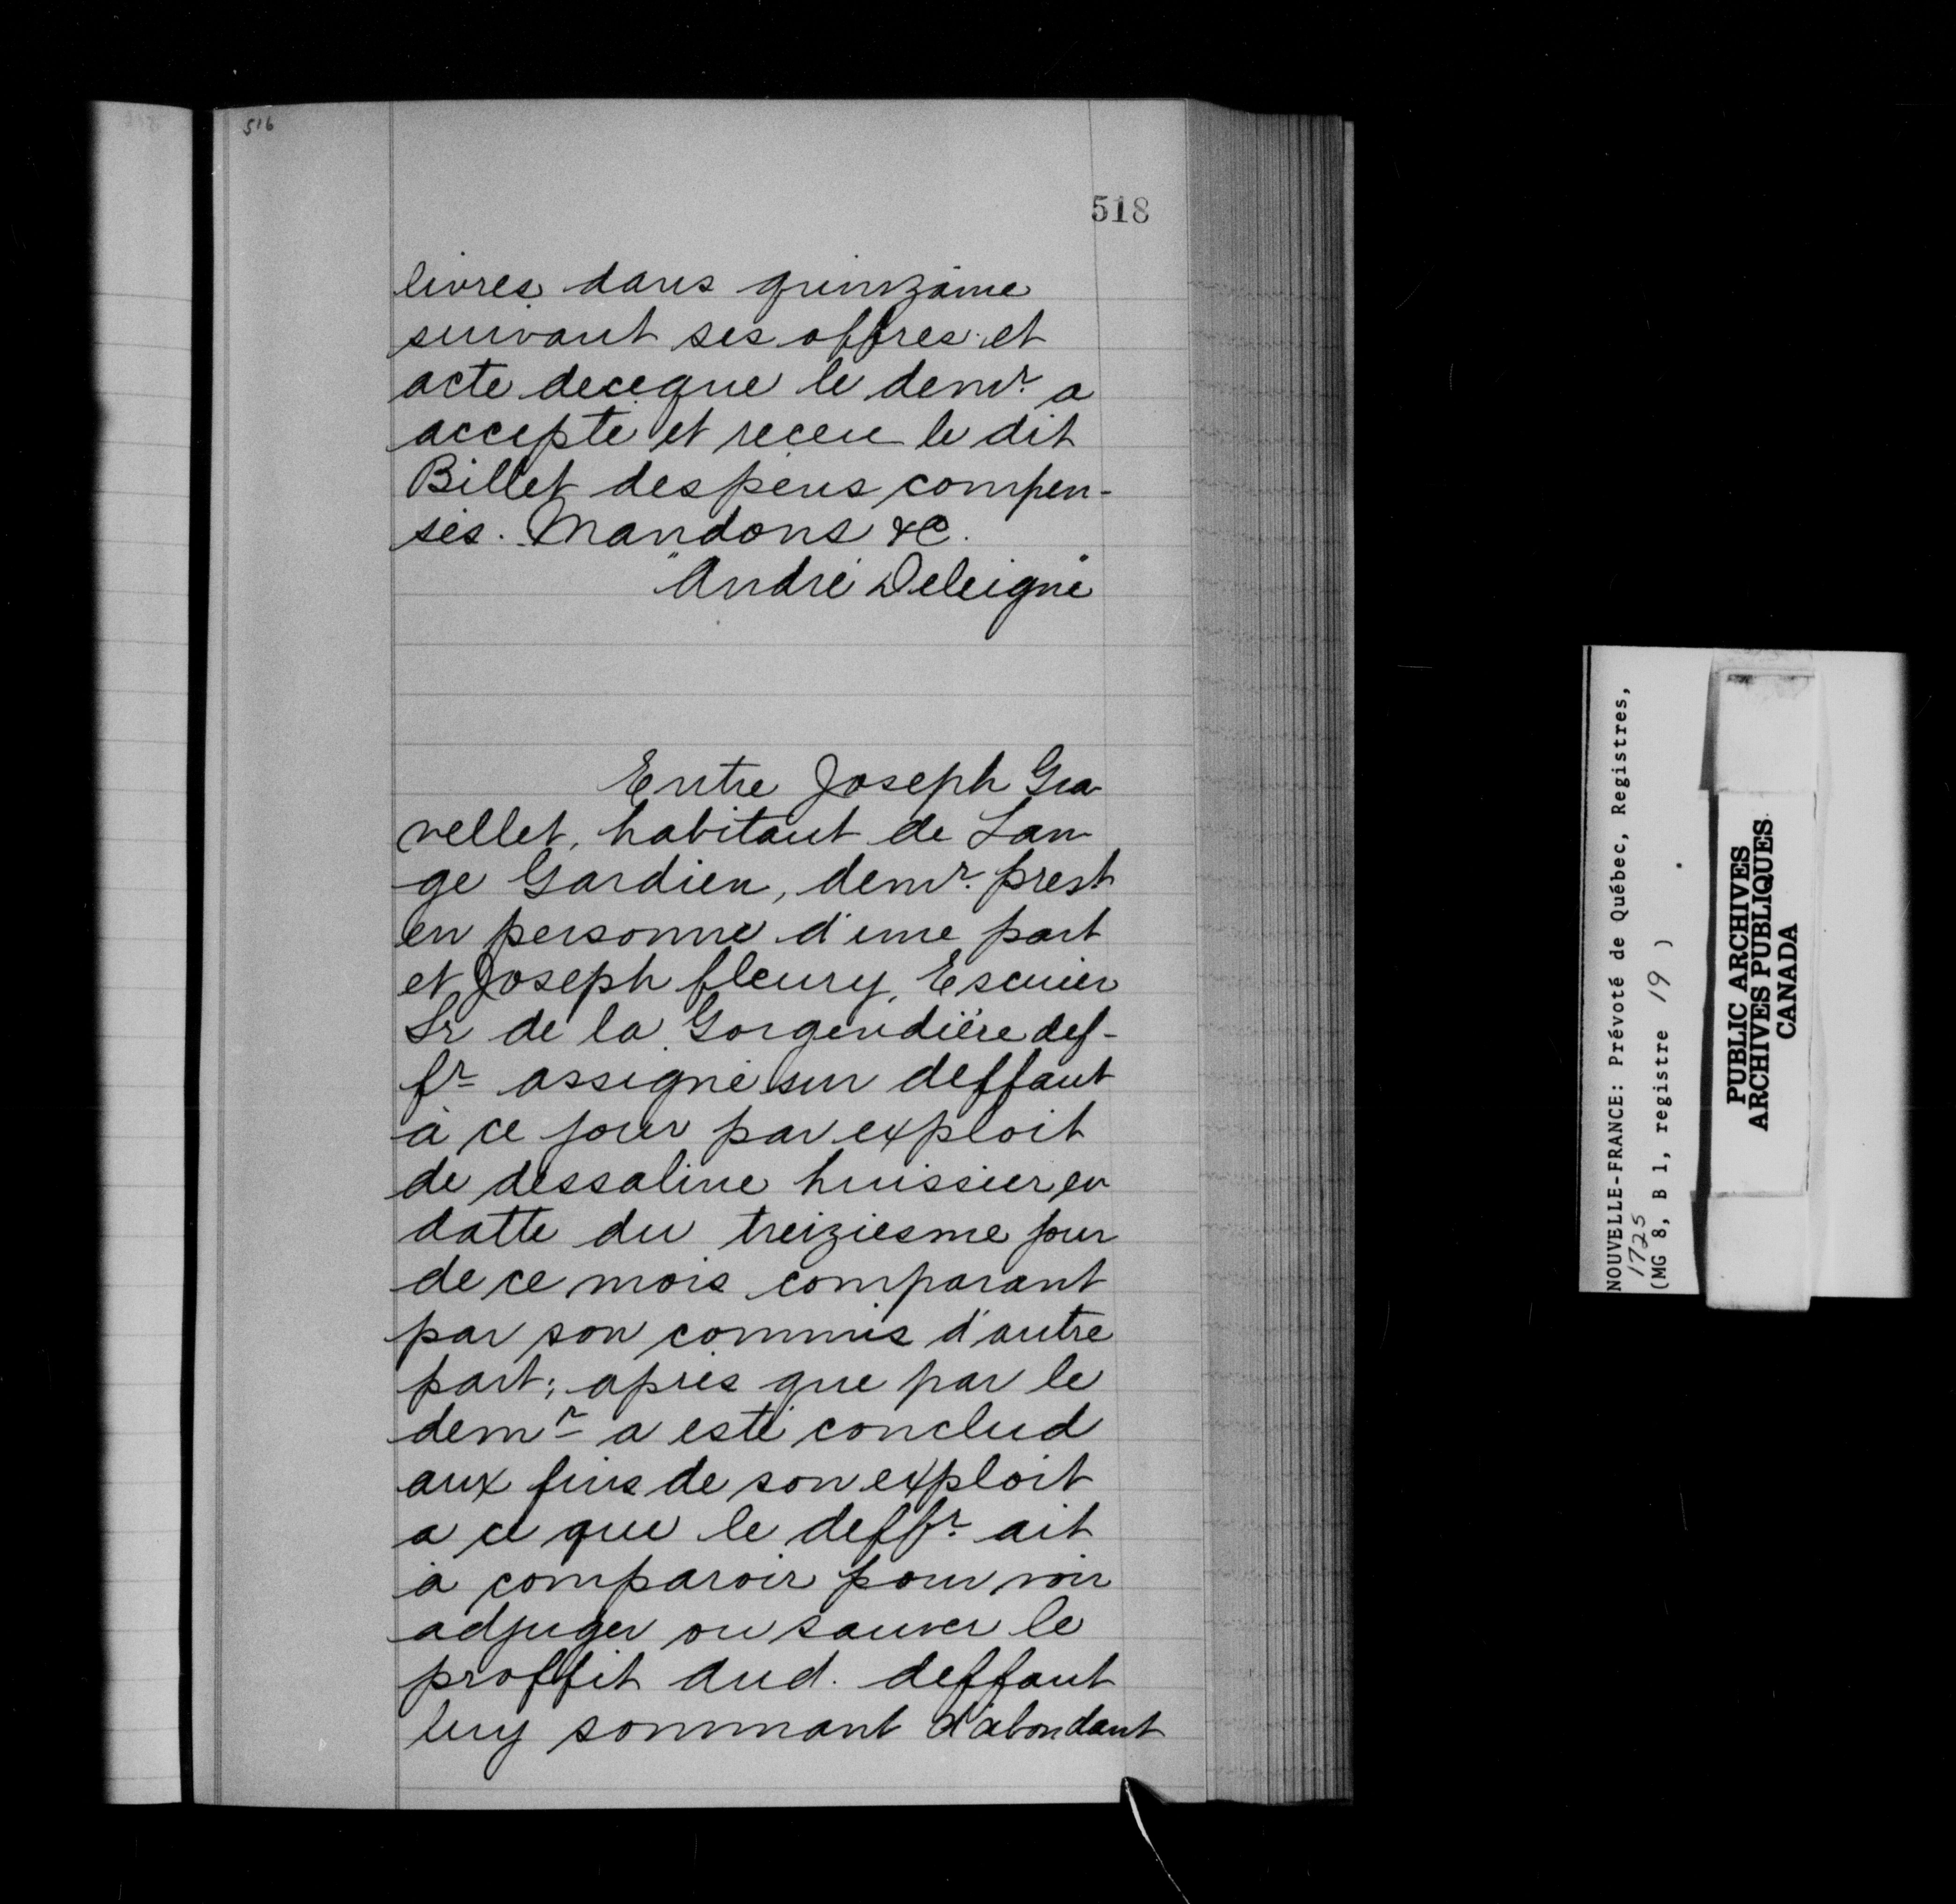 516
518
livres dans quinzaine
suivant ses offres et
acte deceque le demr. a
accepté et receu le dit
Billet despens compen-
sés. Mandons &c.
"André Deleigne"
Entre Joseph Gra
vellet, habitant de Lan
ge Gardien, demr. prest
en personne d'une part
et Joseph fleury, Escuier
Sr de la Gorgendière def-
fr assigné sur deffaut
à ce jour par exploit
de dessaline huissier en
datte du treiziesme jour
de ce mois comparant
par son commis d'autre
part; après que par le
demr a esté conclud
aux fins de son exploit
a ce que le deffr. ait
à comparoir pour voir
adjuger ou sauver le
proffit dud. deffaut
luy sommant d'abondant
NOUVELLE-FRANCE: Prévoté de Québec, Registres,
1725
(MG 8, B 1, registre 19 )
PUBLIC ARCHIVES
ARCHIVES PUBLIQUES
CANADA